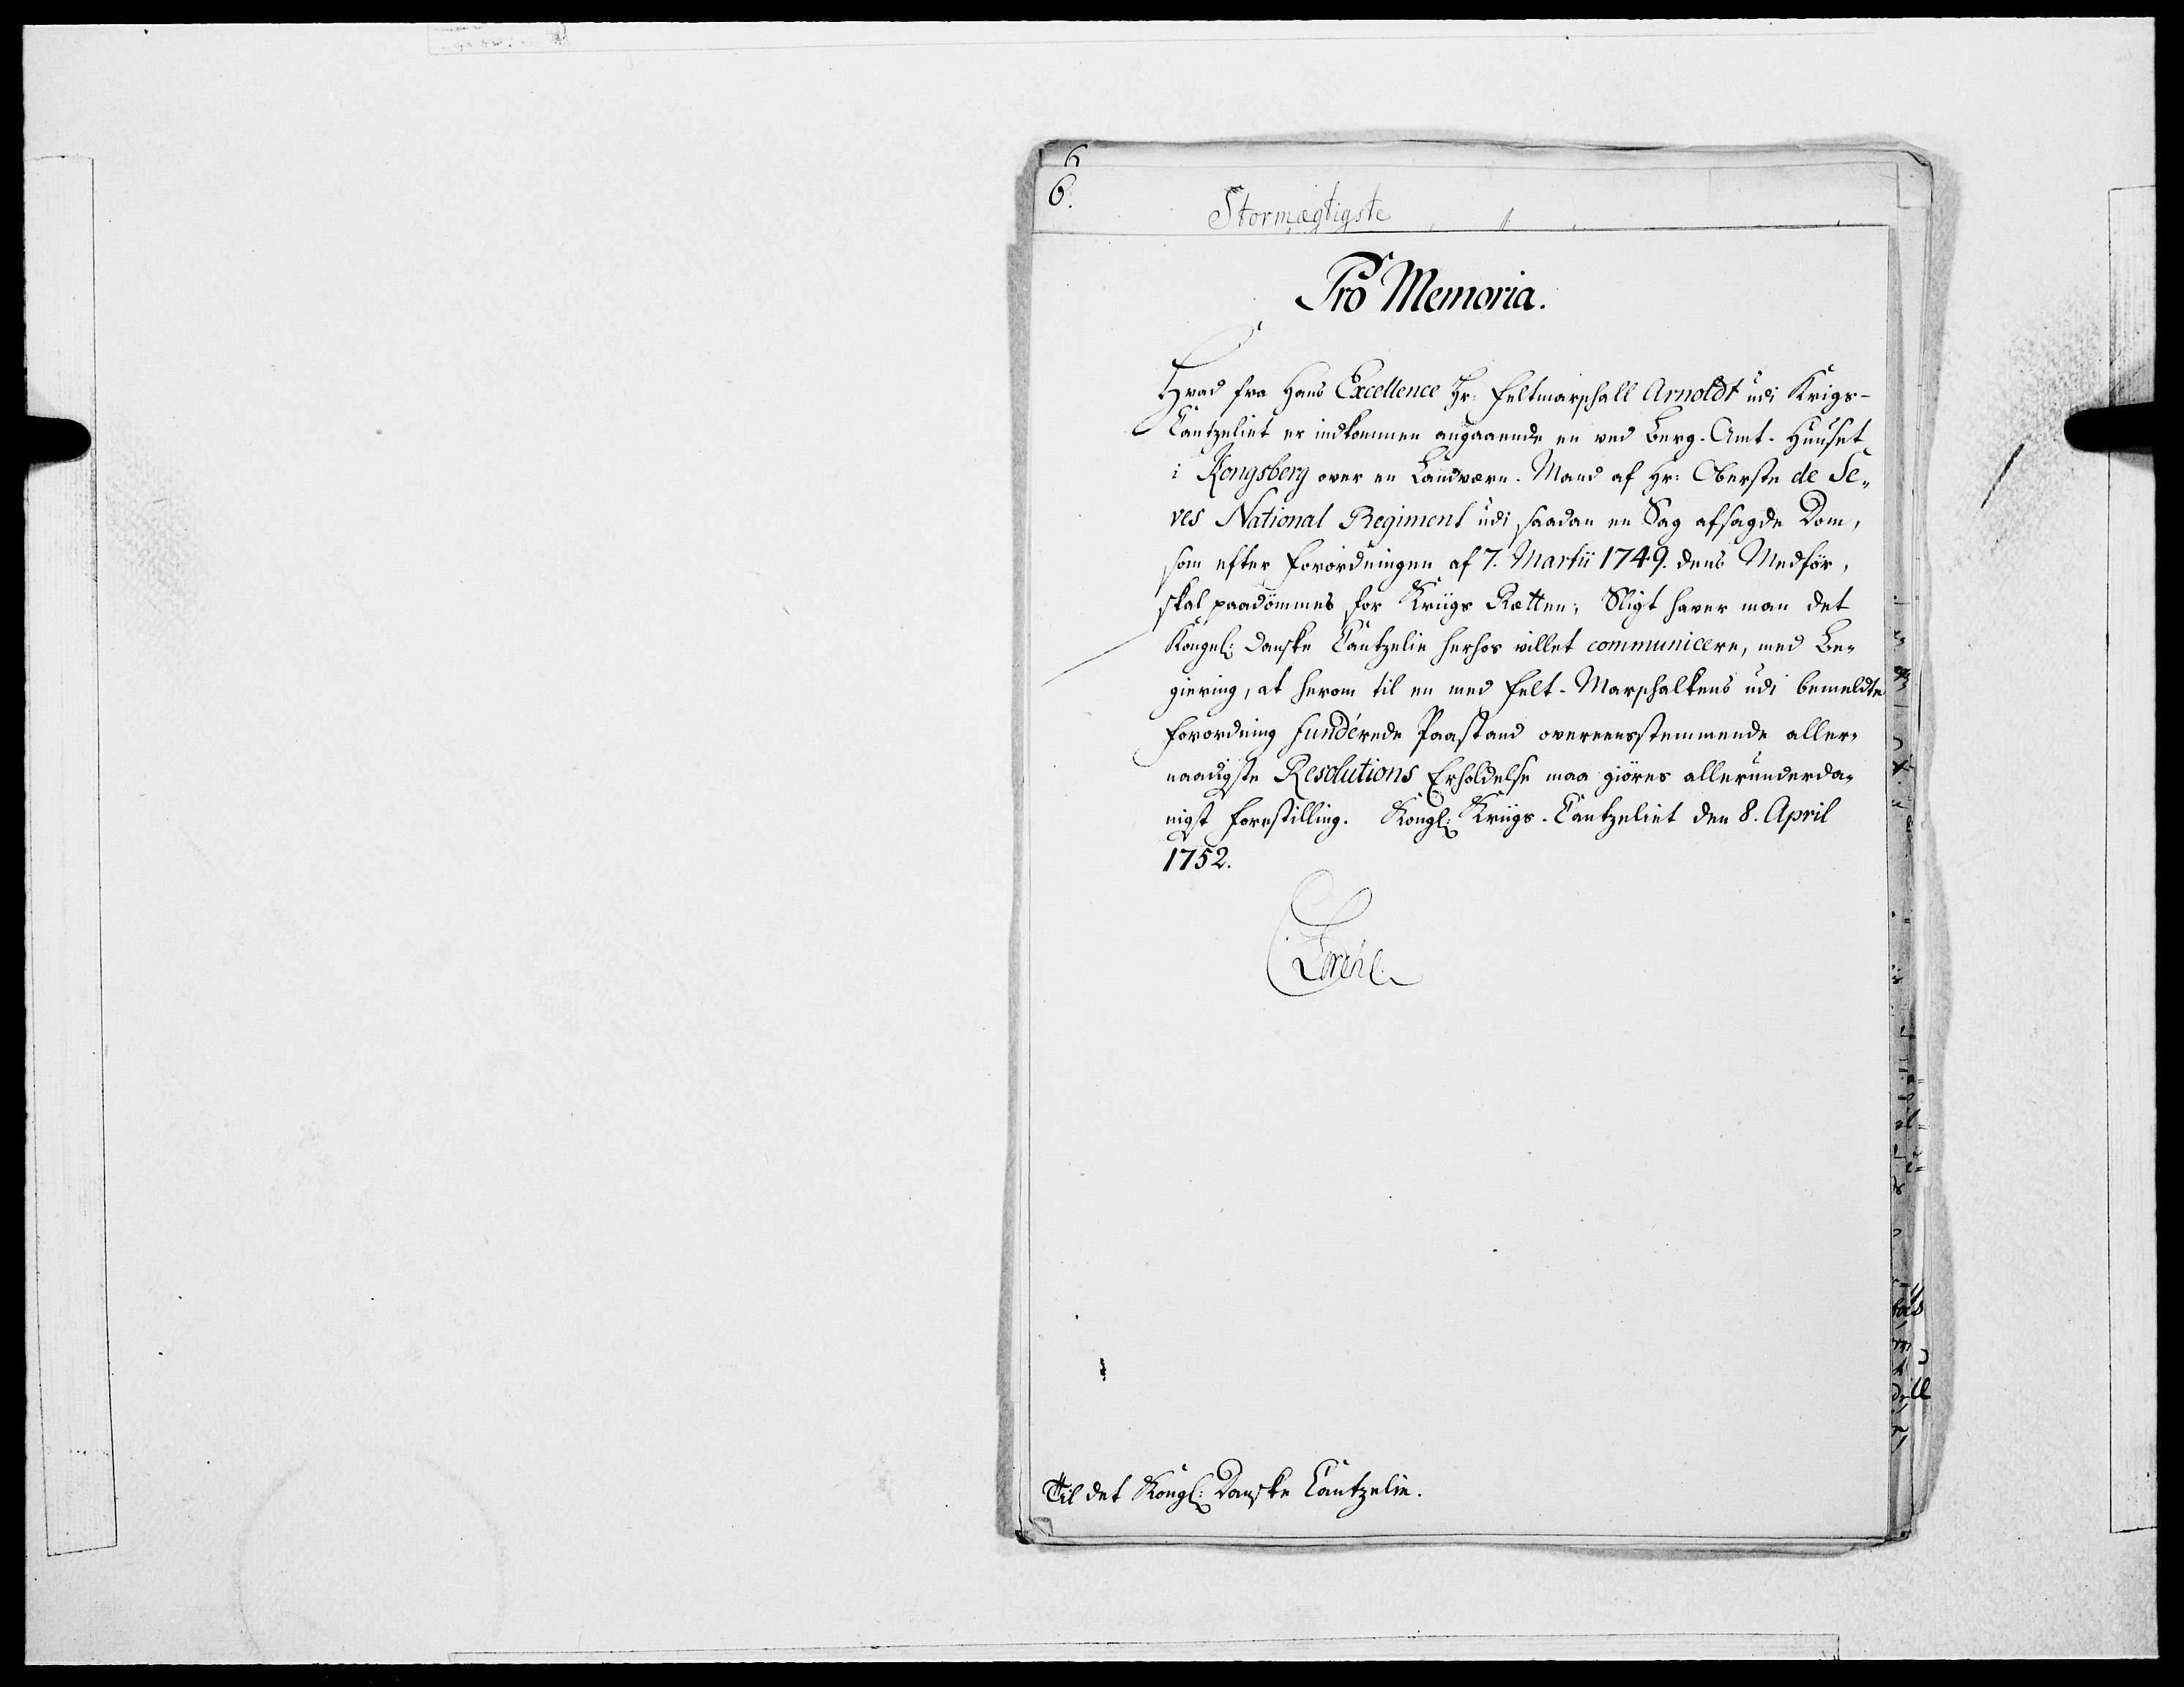 6
6.
Stormægtigste
Pro Memoria.
Hvad fra Hans Excellence Hr: Feltmarschall Arnoldt udi Krigs-
Cantzeliet er indkommen angaaende en ved Berg-Amt-Huuset
i Kongsberg over en Landværn-Mand af Hr: Oberste de Se„
ves National Regiment udi saadan en Sag afsagde Dom,
som efter Forordningen af 7. Martii 1749. dens Medfør,
skal paadømmes for Kriigs Rætten; Sligt haver man det
Kongel: Danske Cantzelie herhos villet communicere, med Be„
giering, at herom til en med Felt-Marschalkens udi bemeldte
Forordning funderede Paastand overeensstemmende aller„
naadigste Resolutions Erholdelse maa giøres allerunderda„
nigst Forestilling. Kongl: Kriigs-Cantzeliet den 8. April
1752.
Til det Kongl: Danske Cantzelie.